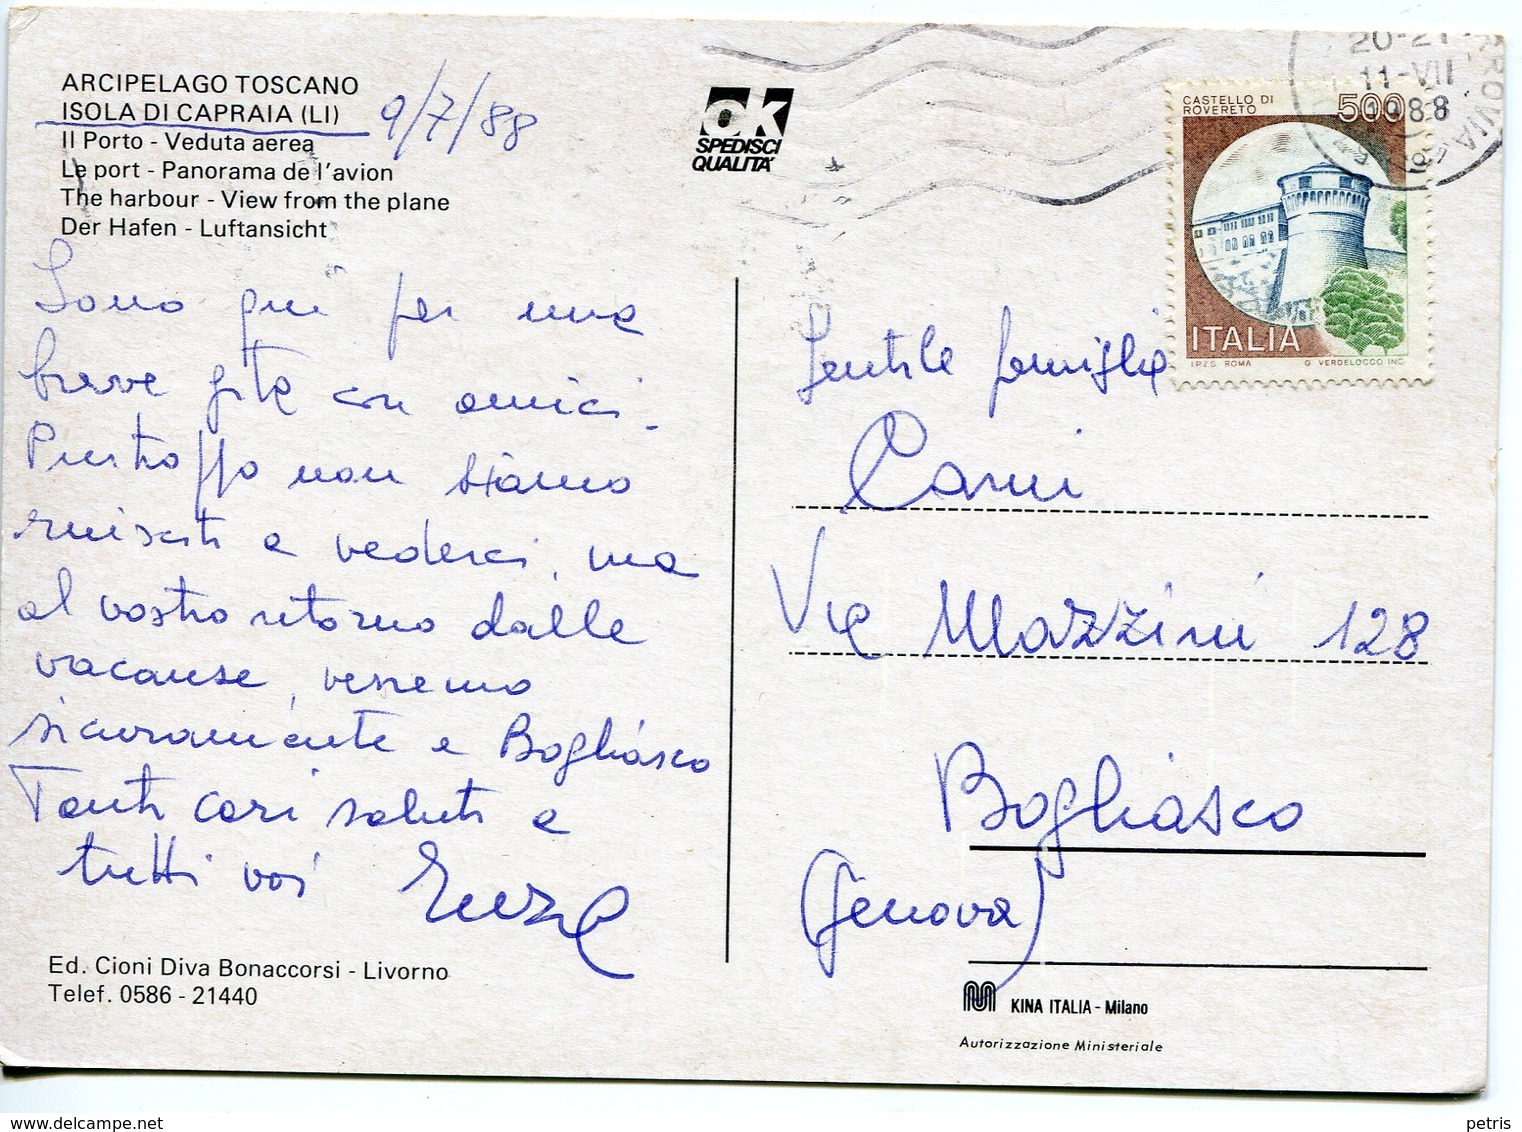 ARCIPELAGO TOSCANO
ISOLA DI CAPRAIA (LI)
9/7/88
Il Porto - Veduta aerea
Le port - Panorama de l'avion
The harbour - View from the plane
Der Hafen - Luftansicht
Sono qui per una
breve gita con amici.
Purtroppo non siamo
riusciti a vederci, ma
al vostro ritorno dalle
vacanze, verremo
sicuramente a Bogliasco
Tanti cari saluti a
tutti voi
Ed. Cioni Diva Bonaccorsi - Livorno
Telef. 0586 - 21440
OK
SPEDISCI
QUALITA'
20-21
11-VII
1988
CASTELLO DI
ROVERETO
500
ITALIA
I.P.Z.S. ROMA G. VERDELOCCO INC.
Gentile famiglia
Carni
Via Mazzini 128
Bogliasco
(Genova)
KINA ITALIA - Milano
Autorizzazione Ministeriale
www.delcampe.net
petris